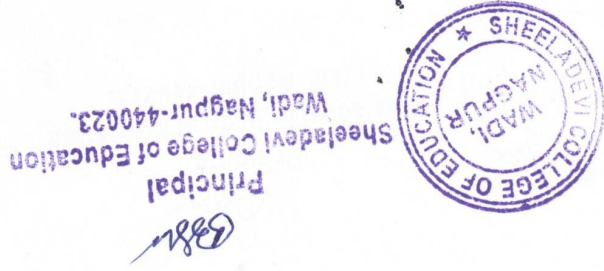 Principal
Sheeladevi College of Education
Wadi, Nagpur-440023.
SHEELADEVI COLLEGE OF EDUCATION ★
WADI,
NAGPUR